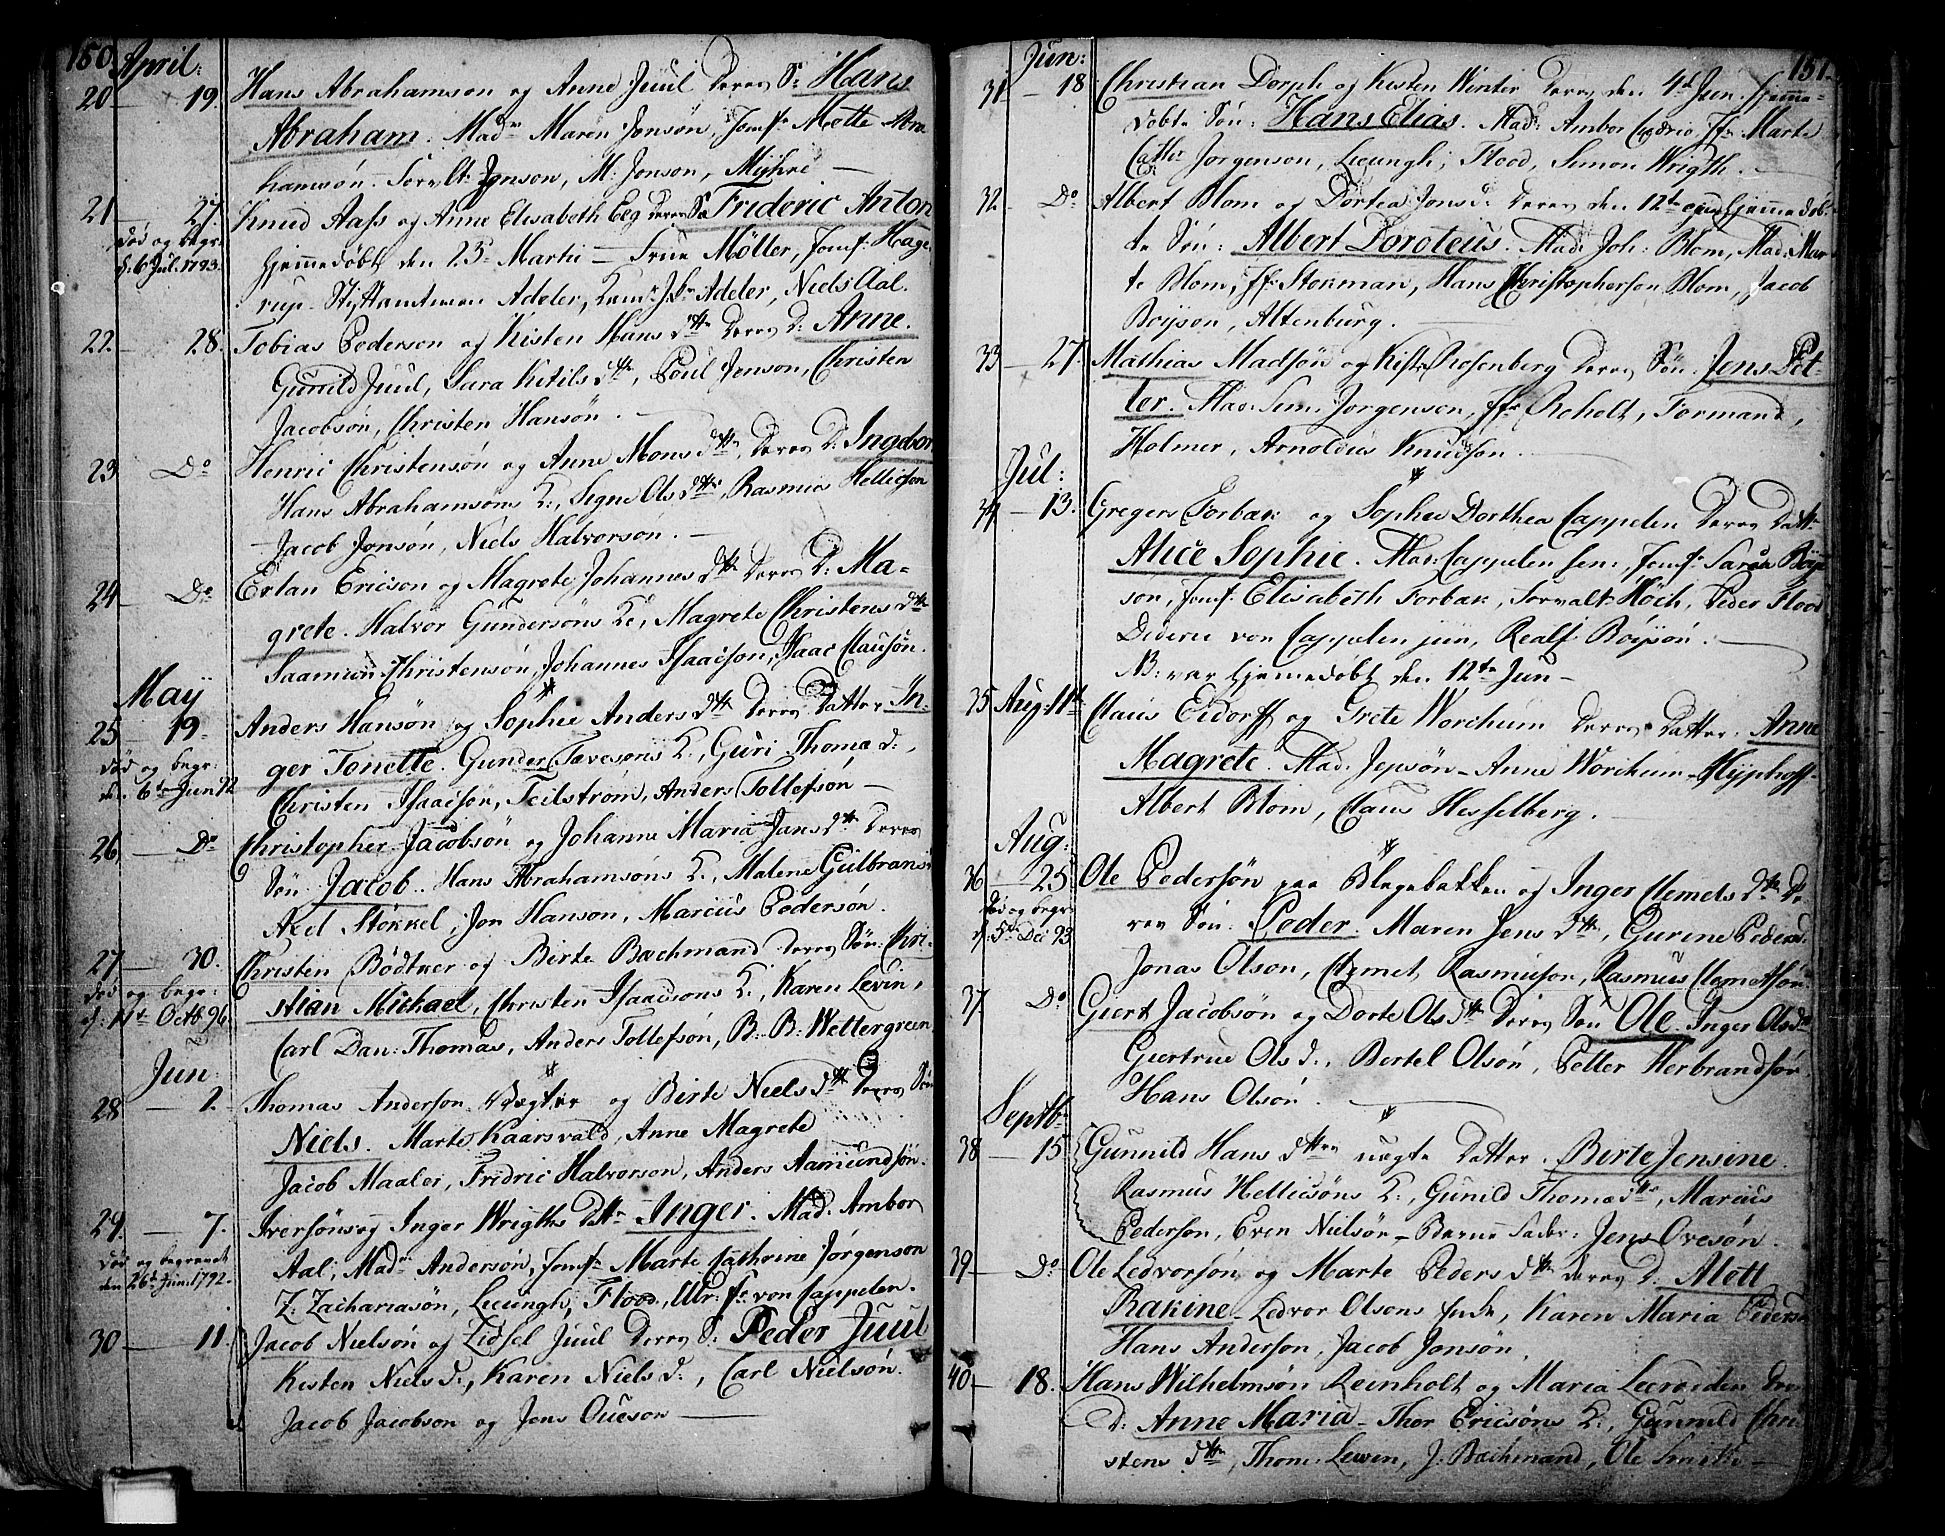 150.
April:
20 — 19. Hans Abrahamson og Anne Juul deres S: Hans
Abraham. Madm Maren Jonsön, Jomf: Mette Abra
hamsön. Jonson, M: Jonson, Myhre —
21 — 27. Knud Aass og Anne Elisabeth Eeg deres Frideric Anton
död og begr: d: 6 Jul: 1793.
Hjemmedöbt den 23 Martii — Frue Möller, Jomf: Hage
rup. Stiftamtman Adeler, Adeler, Niels Aal.
22. — 28. Tobias Pederson og Kisten Hans dttr deres D: Anne.
Gunild Juul, Sara Ketils dttr, Poul Jenson, Christen
Jacobsön, Christen Hansön.
23 — Do Henric Christensön og Anne Mons dttr, deres D: Ingebor
Hans Abrahamsöns K:, Segne Ols dttr, Rasmus Hellicson
Jacob Jonsön, Niels Halvorson. —
24 — Do Erlan Ericson og Magrete Johannes dttr deres D: Ma-
grete. Halvor Gundersöns K:, Magrete Christens dttr
Saamun Christensön, Johannes Isaacson, Isaac Clausön.
May
25 — 19. Anders Hansön og Sophie Anders dttr deres Datter In-
död og begr: den 6te Jun 92
ger Tonette. Gunder Tovesons K:, Guri Thomæ d:,
Christen Isaacsön, Feilström, Anders Tollefsön —
26 — Do Christopher Jacobsön og Johanne Maria Jans dttr deres
Sön Jacob. Hans Abrahamsöns K:, Malene Gulbrans
Axel Stökkel, Jon Hanson, Marcus Pedersön.
27 — 30. Christen Bödtker og Birte Bachmand deres Sön: Chri-
död og begr: d: 11te Octbr 96.
stian Michael, Christen Isaacsons K:, Karen Levin,
Carl Dan: Thomas, Anders Tollefsön, B. B: Wettergreen
Jun:
28 — 2. Thomas Anderson Vægter og Birte Niels dttr deres Sön
Niels. Marte Kaarsvald, Anne Magrete
Jacob Maaler, Fridric Halvorson, Anders Aamundsön.
29. — 7. Iversöns og Inger Wrigths dattr Inger. Mad. Ambor
död og begravet den 26d Jun: 1792.
Aal, Madm Andersön, Jomf: Marte Cathrine Jörgenson
Z: Zachariasön, Leeungh, Flood, von Cappelen.
30 — 11. Jacob Nielsön og Zidsel Juul deres S: Peder Juul
Kisten Niels d:, Karen Niels d:, Carl Nielsön.
Jacob Jacobson og Jens Oveson —
151.
Jun:
31 — 18 Christian Dorph og Kisten Winter deres den 4d Jun: hjemme-
döbte Sön: Hans Elias. Mad: Ambor Cudrio, Jfr Marte
Cathr: Jörgenson, Leeungh, Flood, Simon Wrigth.
32. — Do Albert Blom og Dortea Jons d: deres den 12te hjemmedöb
te Sön: Albert Doroteus. Mad: Joh: Blom, Mad: Mar
te Blom, Jfr Stonman, Hans Christopherson Blom, Jacob
Boyson, Altenburg.
33 — 27. Mathias Madsön og Kist: Rosenberg deres Sön. Jens Pet-
ter. Mad: Sem: Jorgenson, Jfr Roholt, Formand,
Holmer, Arnoldus Knudson.
Jul:
34 — 13. Gregers Forbak og Sophie Dorthea Cappelen deres Datt:
Alice Sophie. Mad: Cappelen sen: Jomf: Sara Boy
son, Jomf: Elisabeth Forbak, Forvalt: Höch, Peder Flood
Dideric von Cappelen jun, Realf Böyson.
B: var hjemmedöbt den 12te Jun —
35 Aug: 11te Claus Eidorff og Grete Worchum deres Datter. Anne
Magrete. Mad. Jepsön — Anne Worchum — Hyphoff —
Albert Blom, Claus Hesselberg.
Aug:
36 — 25 Ole Pedersön paa Blegebakken og Inger Clemets dttr De
död og begr: d: 5te Dec 93
res Sön: Peder. Maren Jens dttr, Gurine Peders d.
Jonas Olson, Clemet Rasmuson, Rasmus Clemetsön.
37. — Do Giert Jacobsön og Dorte Ols dttr deres Sön Ole. Inger Olsd:
Giertrue Ols d:, Bertel Olsön, Petter Herbrandsön
Hans Olsön.
Septbr
38 — 15 Gunnild Hans dttr uægte Datter. Birte Jensine.
Rasmus Hellicsöns K:, Gunild Thomæ dtr, Marcus
Pederson, Even Nielsön — Barne Fader: Jens Ovesön.
39 — Do Ole Ledvorsön og Marte Peders dttr deres D. Alett
Rakine — Ledvor Olsons Enke, Karen Maria Peders
Hans Anderson, Jacob Jonsön.
40 — 18. Hans Wilhelmsön Reinholt og Maria Leerviden deres
D: Anne Maria — Thor Ericsöns K:, Gunnuld Chri
stens dttr, Thom: Lewen, J: Bachmand, Ole Smith —